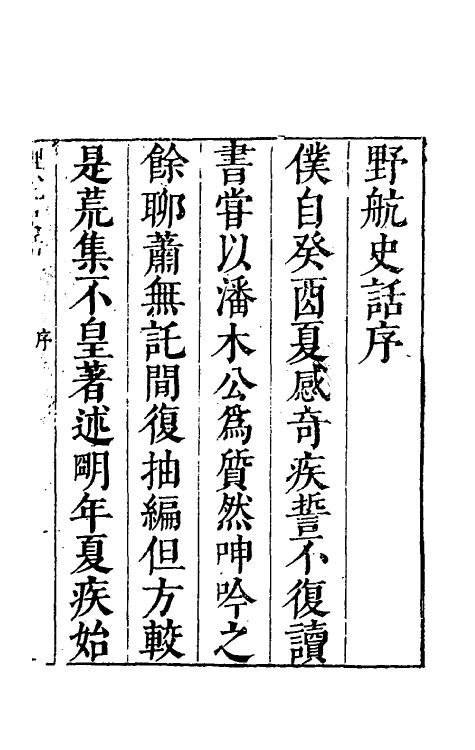 野航史話序
僕自癸酉夏感奇疾誓不復讀
書嘗以潘木公爲質然呻吟之
餘聊蕭無託間復抽編但方較
是荒集不皇著述明年夏疾始
序